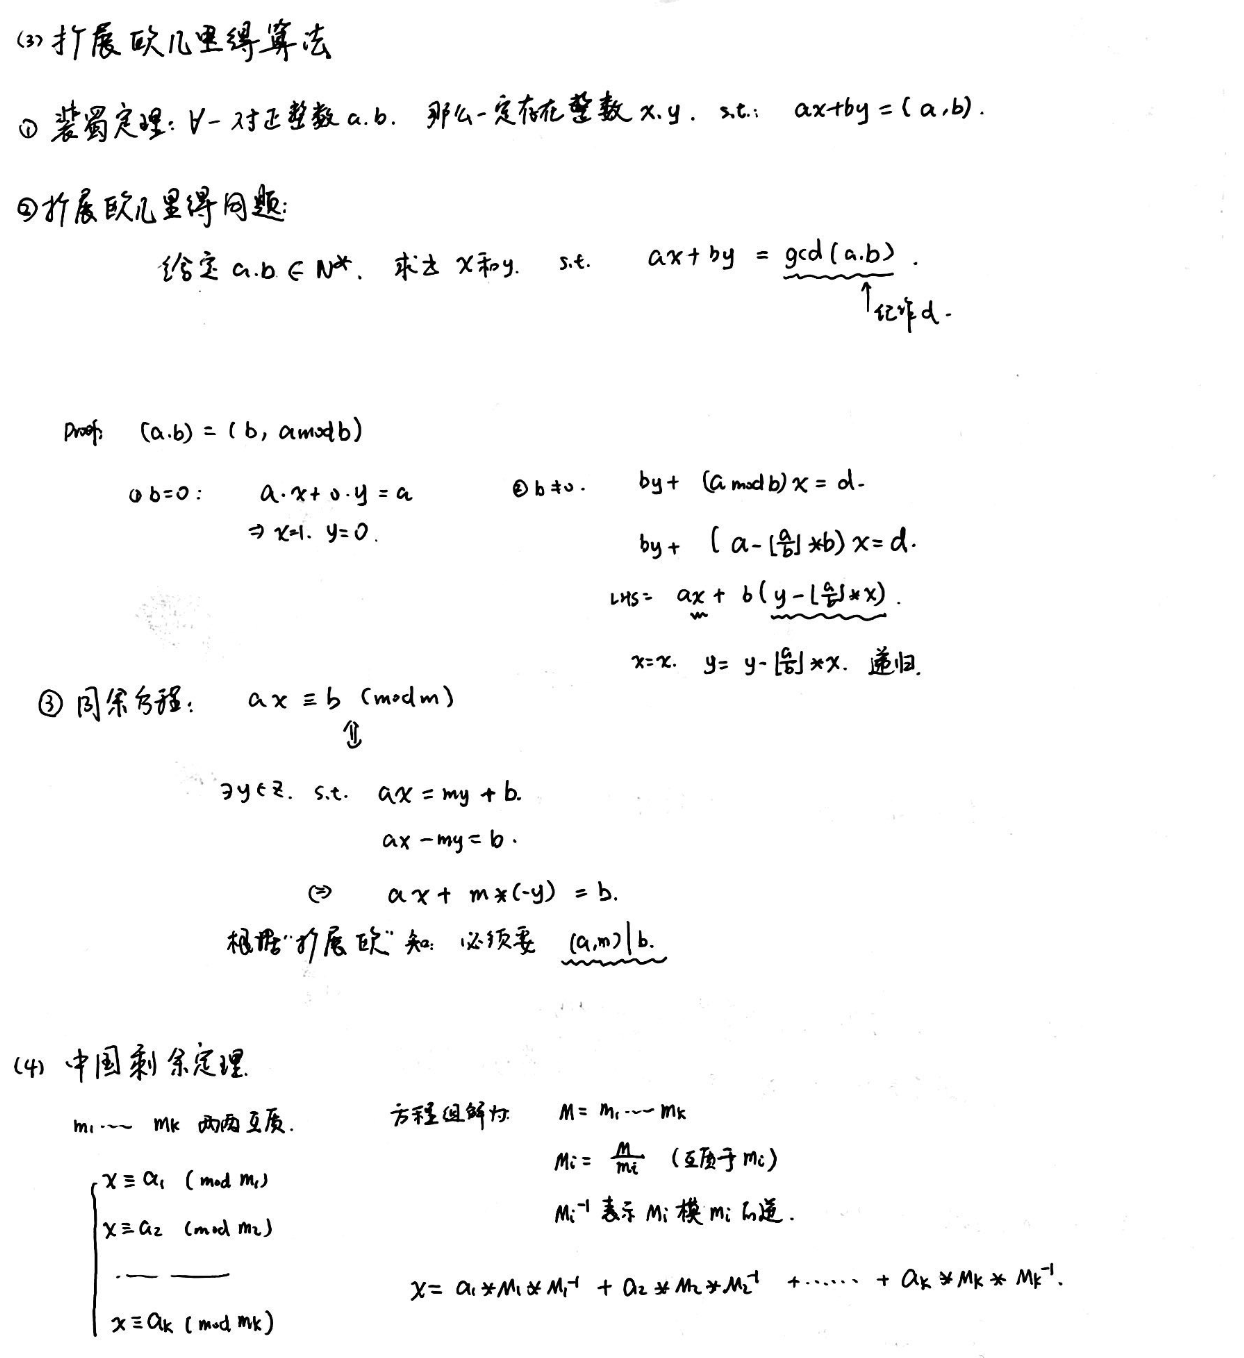 (3) 扩展欧几里得算法
① 裴蜀定理: ∀一对正整数 a.b. 那么一定存在整数 x.y. s.t.: ax+by=(a,b).
② 扩展欧几里得问题:
给定 a.b ∈ N*. 求出 x和y. s.t. ax+by = gcd(a.b).
↑记作d.
Proof: (a.b) = (b, a mod b)
① b=0: a·x+0·y=a
⇒ x=1. y=0.
② b≠0. by+ (a mod b)x = d.
by+ (a-⌊a/b⌋*b)x=d.
LHS= ax + b(y-⌊a/b⌋*x).
x=x. y= y-⌊a/b⌋*x. 递归.
③ 同余方程: ax ≡ b (mod m)
⇕
∃y∈Z. s.t. ax = my + b.
ax - my = b.
⇔ ax + m*(-y) = b.
根据"扩展欧"知: 必须要 (a,m)|b.
(4) 中国剩余定理
m₁ ... mk 两两互质.
x ≡ a₁ (mod m₁)
x ≡ a₂ (mod m₂)
... ...
x ≡ ak (mod mk)
方程组解为: M = m₁ ... mk
Mi = M/mi (互质于mi)
Mi⁻¹ 表示 Mi 模 mi 的逆.
x = a₁*M₁*M₁⁻¹ + a₂*M₂*M₂⁻¹ +......+ ak*Mk*Mk⁻¹.